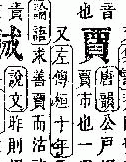 音唐韻公戶
也賈賈市也一
又左傳桓十年
論語求善賈而沽
責
說文昨則